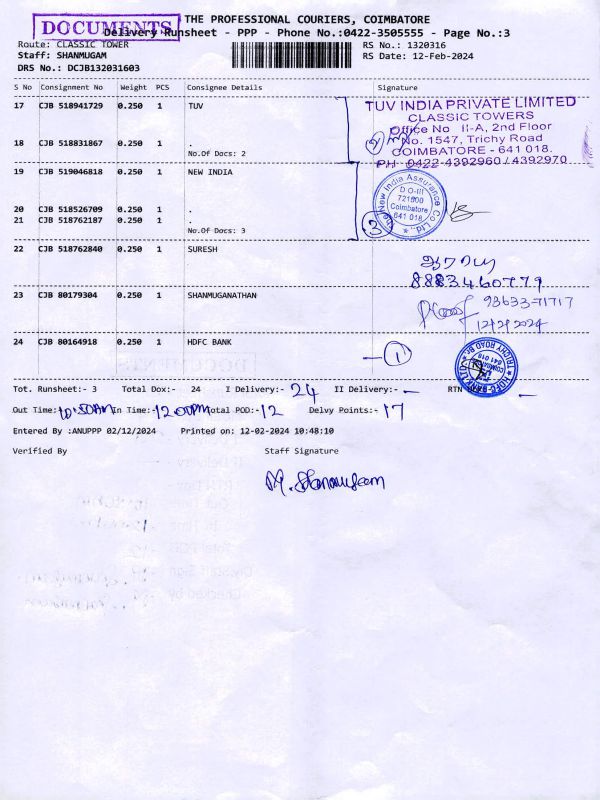 DOCUMENTS
THE PROFESSIONAL COURIERS, COIMBATORE
Delivery Runsheet - PPP - Phone No.:0422-3505555 - Page No.:3
Route: CLASSIC TOWER RS No.: 1320316
Staff: SHANMUGAM RS Date: 12-Feb-2024
DRS No.: DCJB132031603
S No Consignment No Weight PCS Consignee Details Signature
17 CJB 518941729 0.250 1 TUV
TUV INDIA PRIVATE LIMITED
CLASSIC TOWERS
Office No II-A, 2nd Floor
No. 1547, Trichy Road
COIMBATORE - 641 018.
PH 0422-4392960 / 4392970
2
18 CJB 518831867 0.250 1 .
No.Of Docs: 2
19 CJB 519046818 0.250 1 NEW INDIA
The New India Assurance Co Ltd.
D O-III
721600
Coimbatore
641 018
3
20 CJB 518526709 0.250 1 .
21 CJB 518762187 0.250 1 .
No.Of Docs: 3
22 CJB 518762840 0.250 1 SURESH
8883460779
23 CJB 80179304 0.250 1 SHANMUGANATHAN
9863371717
12/2/2024
24 CJB 80164918 0.250 1 HDFC BANK
1
Tot. Runsheet:- 3 Total Dox:- 24 I Delivery:- 24 II Delivery:- — RTN —
Out Time:10.50AM In Time:-12.00PM Total POD:-12 Delvy Points:- 17
Entered By :ANUPPP 02/12/2024 Printed on: 12-02-2024 10:48:10
Verified By Staff Signature
M. Shanmugam